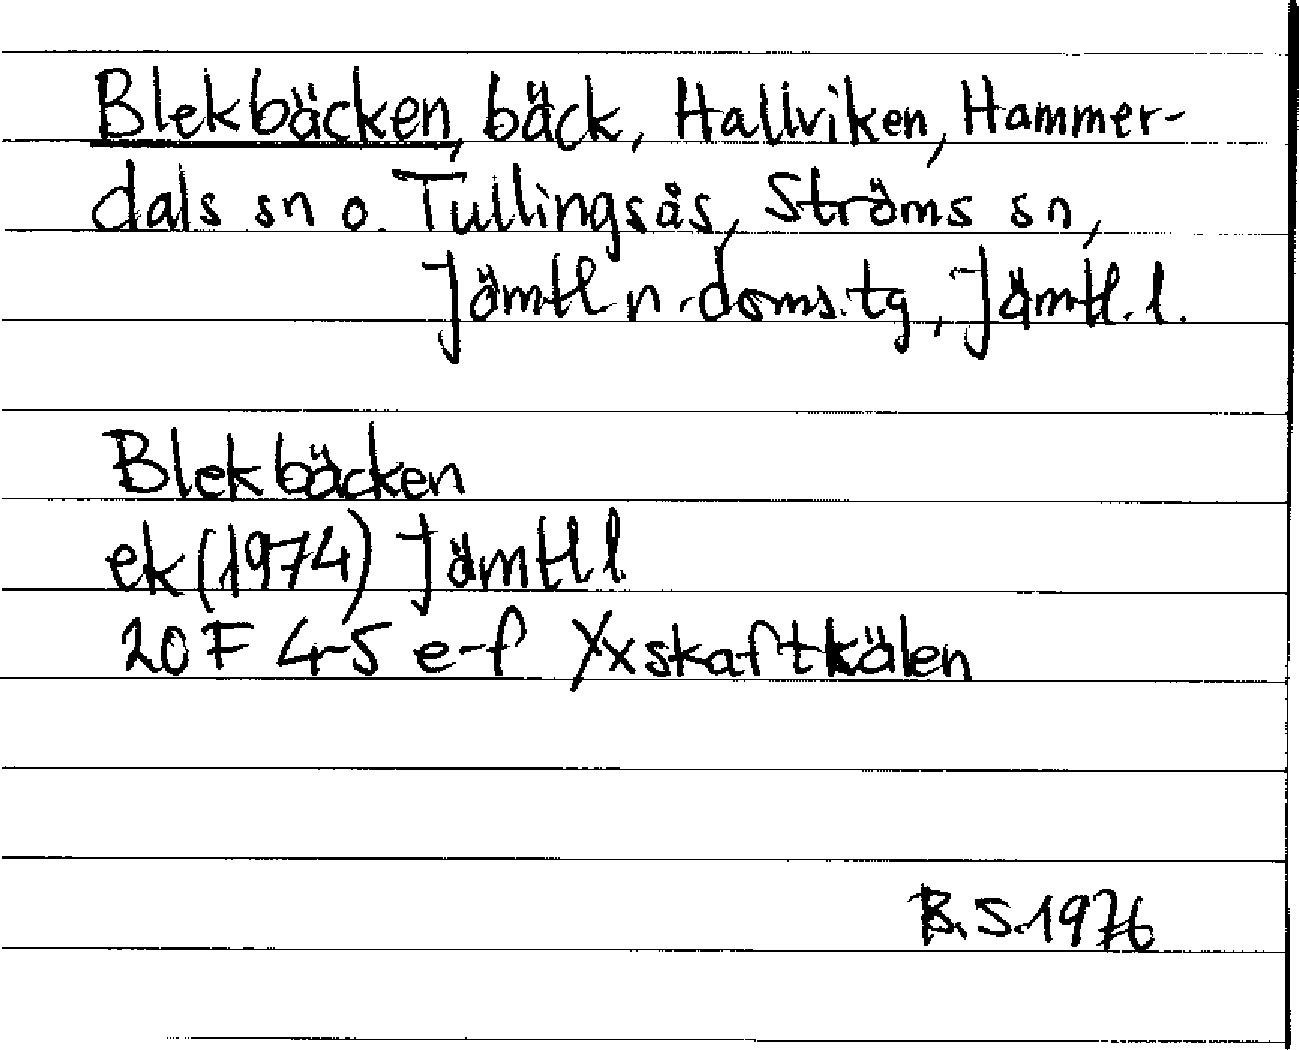 Blekbäcken, bäck, Hallviken, Hammer-
dals sn o. Tullingsås, Ströms sn,
Jämtl n. doms.tg, Jämtl. l.
Blekbäcken
ek (1974) Jämtl l
20 F 4-5 e-f Yxskaftkälen
B.S. 1976